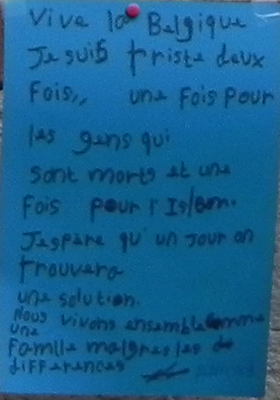 Vive la Belgique
Je suis triste deux
Fois,, une Fois pour
les gens qui
sont morts et une
Fois pour l'Islam.
J'espère qu'un Jour on
trouvera
une solution.
Nous vivons ensemble comme
une
Famlle malgres les
differences